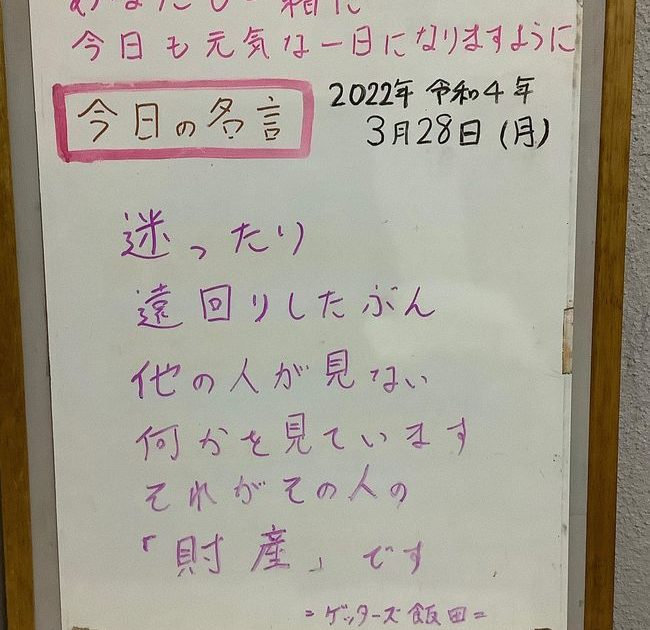 あなたも一緒に
今日も元気な一日になりますように
今日の名言
2022年 令和4年
3月28日(月)
迷ったり
遠回りしたぶん
他の人が見ない
何かを見ています
それがその人の
「財産」です
=ゲッターズ飯田=